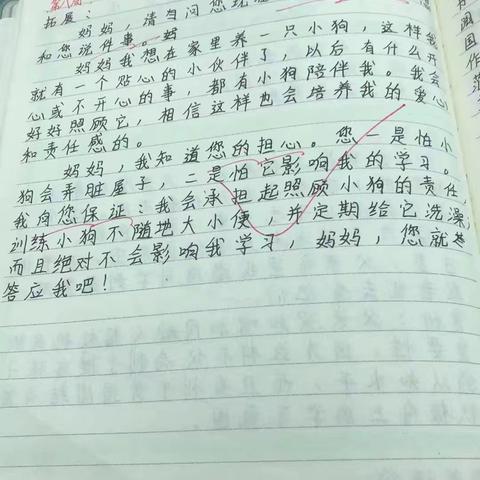 拓展：
妈妈，请勿问您现
和您说件事。妈
妈妈我想在家里养一只小狗，这样我
就有一个贴心的小伙伴了，以后有什么开
心或不开心的事，都有小狗陪伴我。我会
好好照顾它，相信这样也会培养我的爱心
和责任感的。
妈妈，我知道您的担心。您一是怕小
狗会弄脏屋子，二是怕它影响我的学习。
我向您保证：我会承担起照顾小狗的责任，
训练小狗不随地大小便，并定期给它洗澡，
而且绝对不会影响我学习，妈妈，您就
答应我吧！